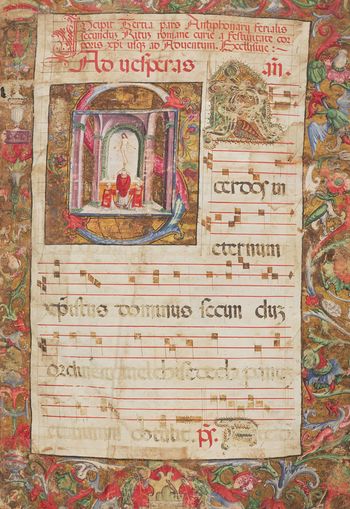 INcipit Tertia pars Antiphonarij ferialis
secundus Ritus romane curie a festiuitate cor
poris xpi usq; ad Aduentum. Exclusiue :~
Ad uesperas .añ.
Sa
cerdos in
eternum
xpistus dominus secun duʒ
ordinem melchisedech panem
et uinum obtulit. ps̃.